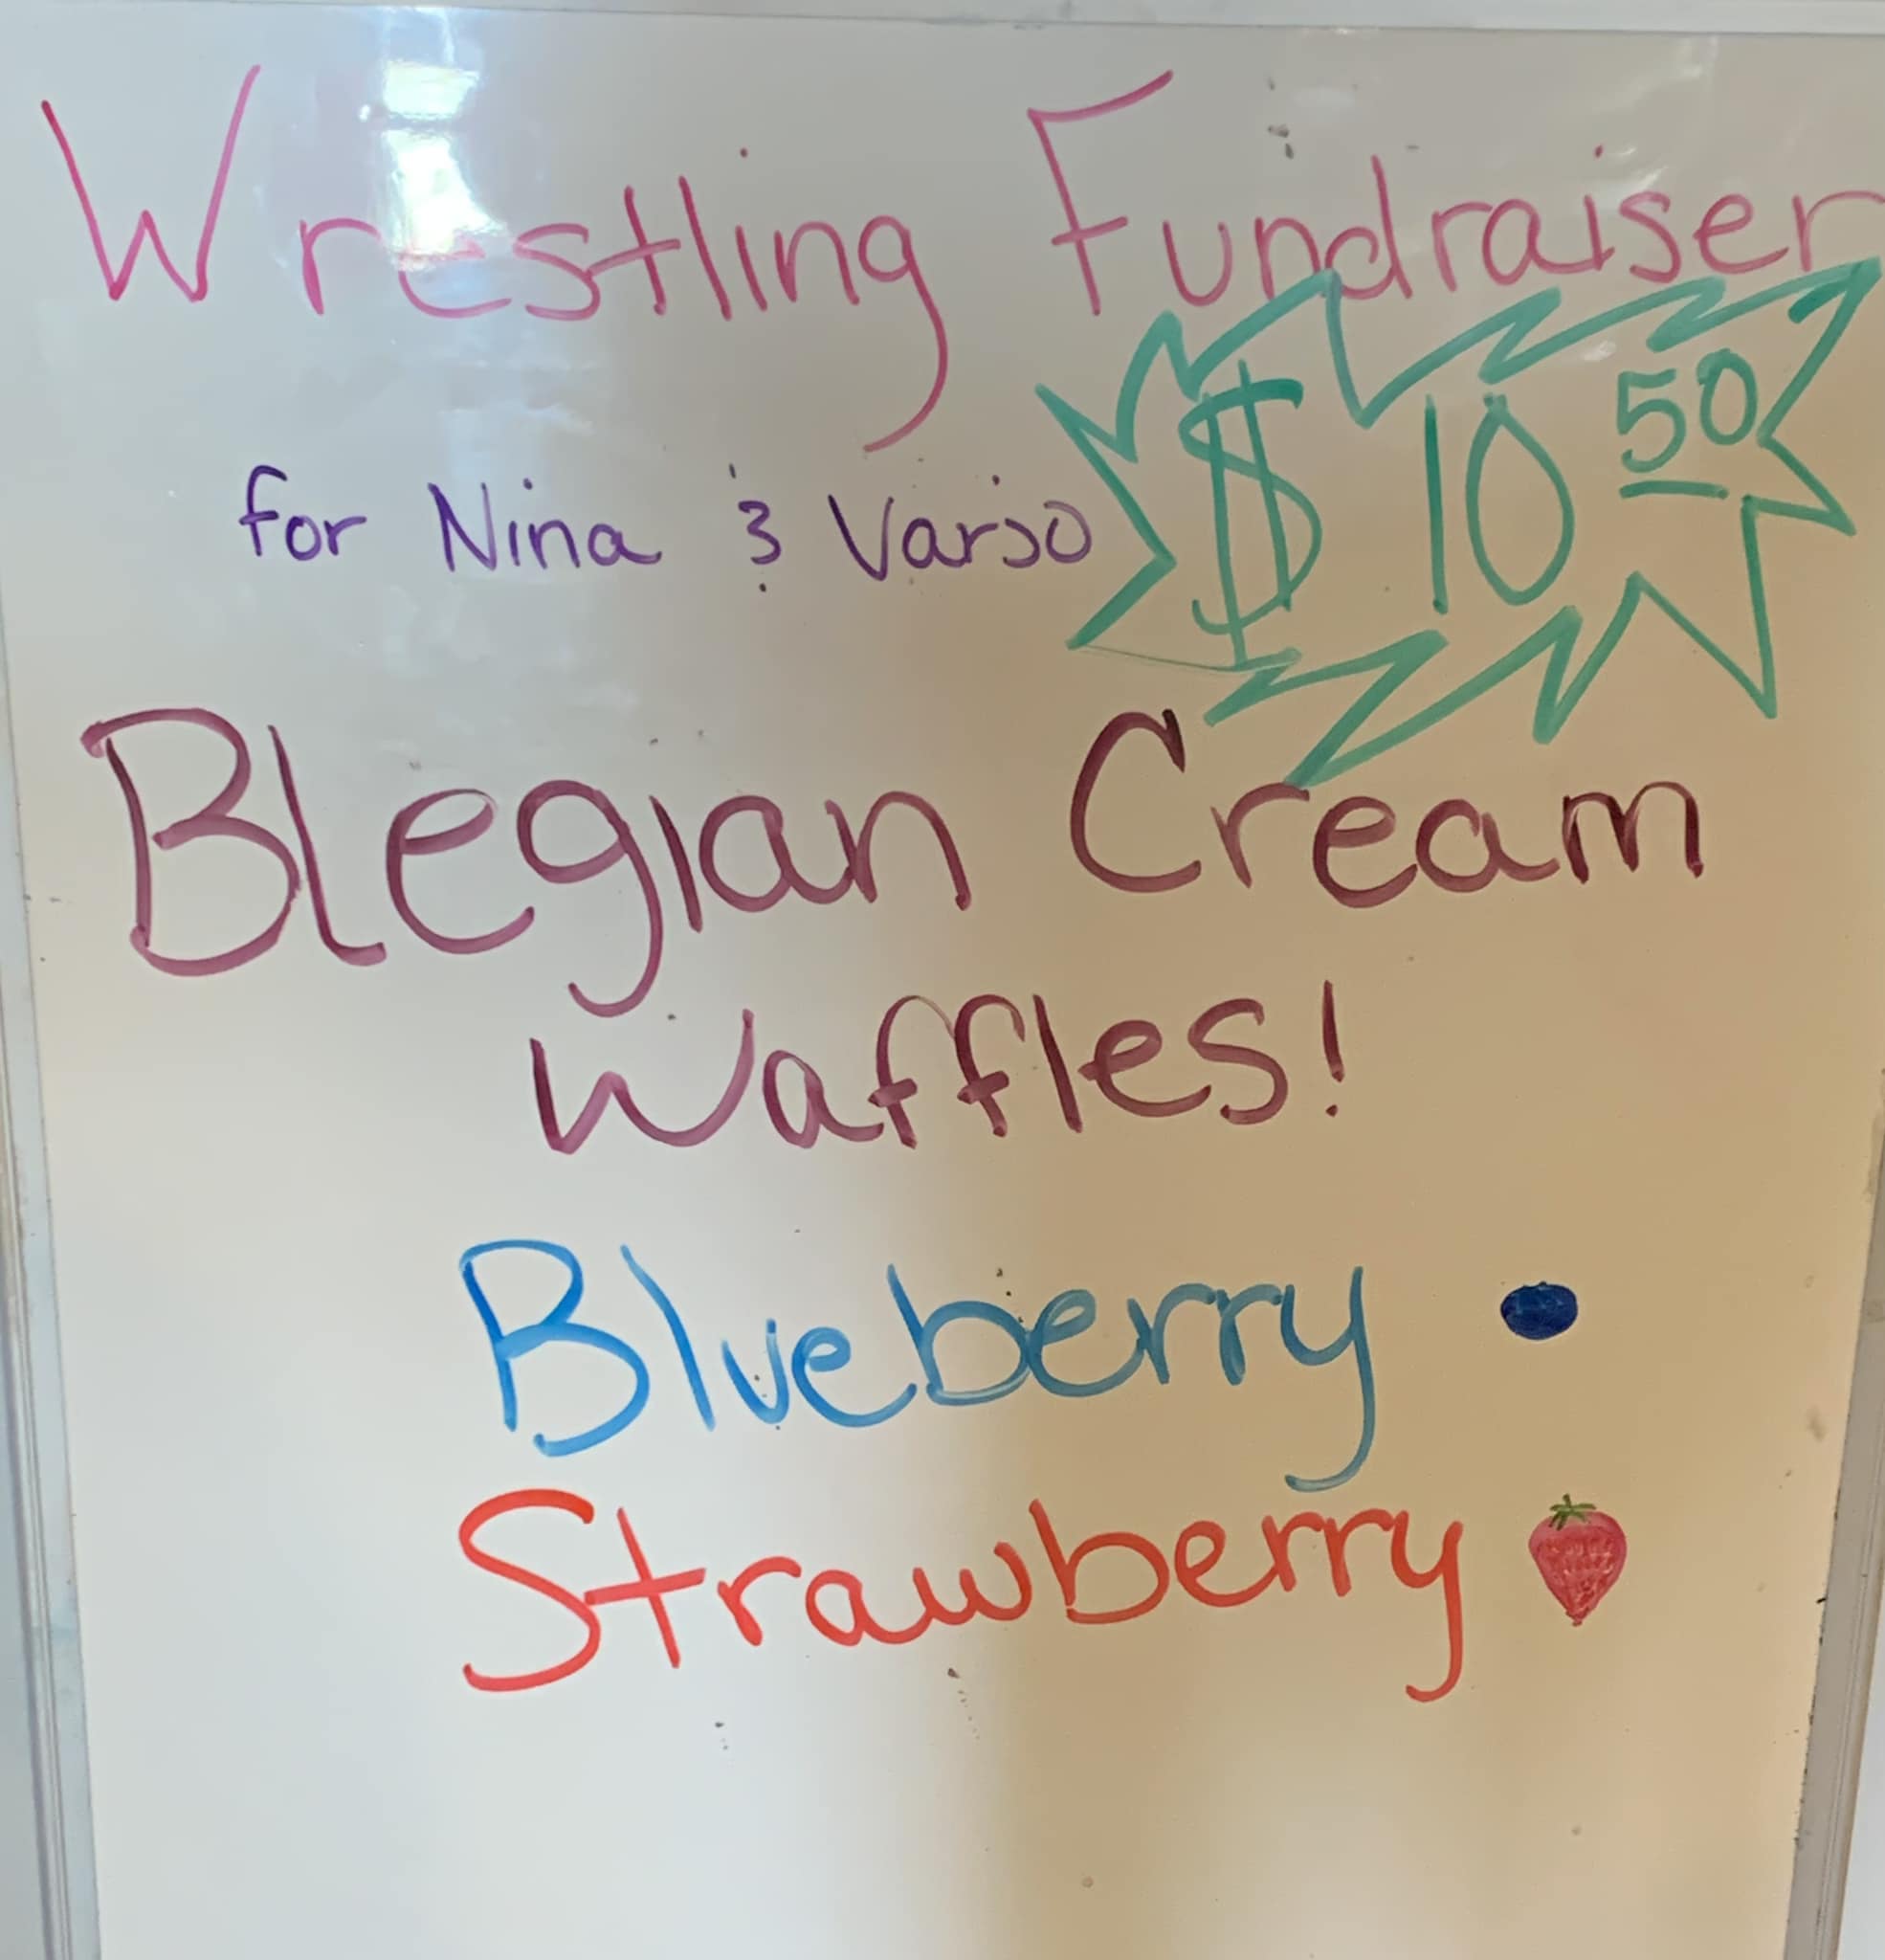 Wrestling Fundraiser
for Nina & Varso
$10 50
Blegian Cream
Waffles!
Blueberry
Strawberry